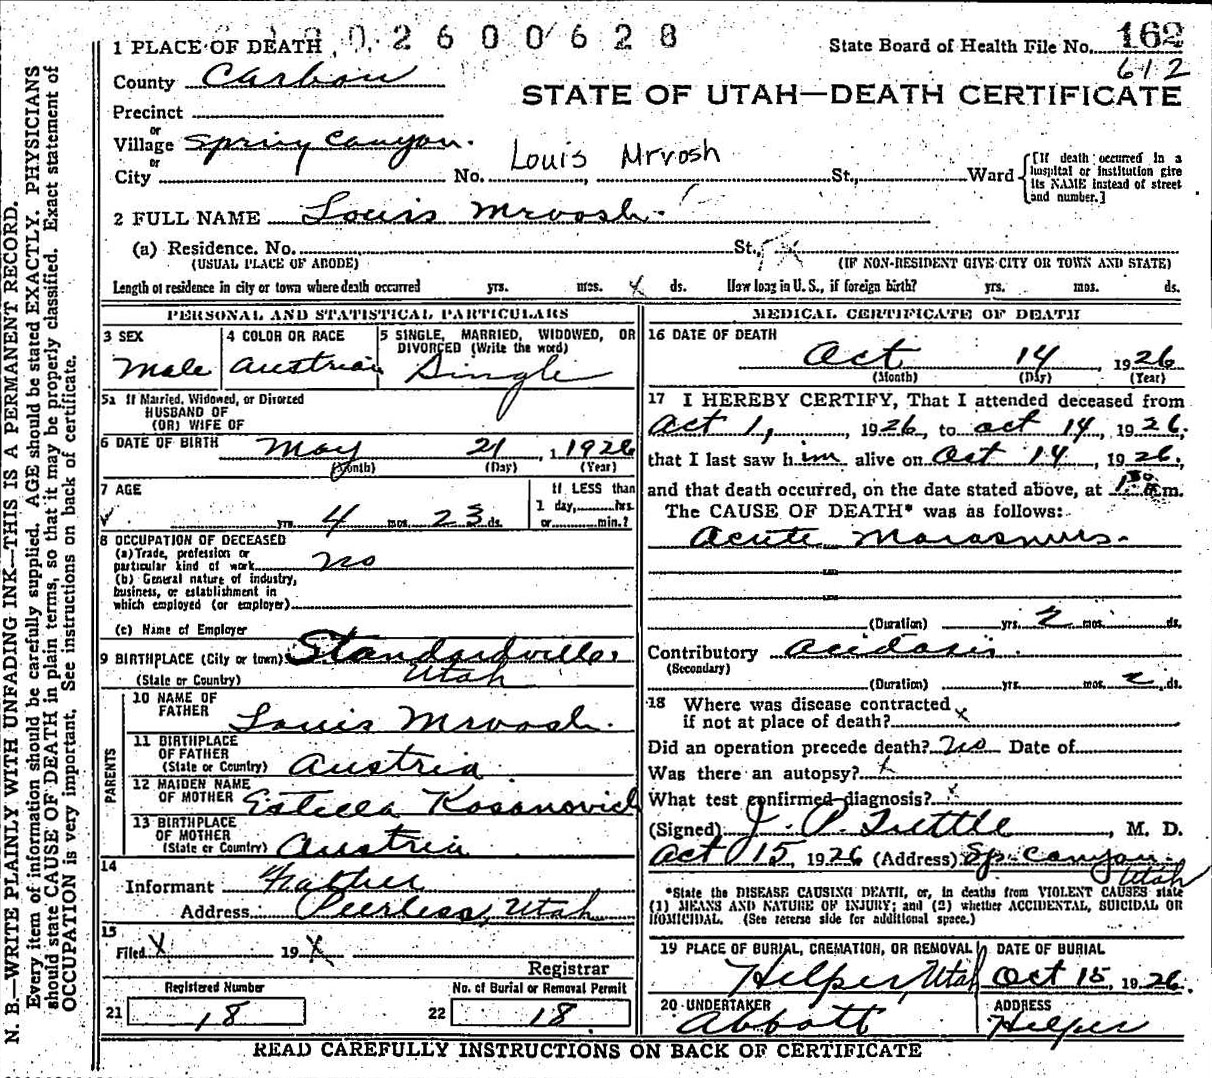 1 PLACE OF DEATH 1 0 0 2 6 0 0 6 2 8
State Board of Health File No. 162
612
County Carbon
STATE OF UTAH—DEATH CERTIFICATE
Precinct
or
Village Spring Canyon.
or
City No. Louis Mrvosh St., Ward
[If death occurred in a hospital or institution give its NAME instead of street and number.]
2 FULL NAME Louis Mrvosh.
(a) Residence. No. St.,
(USUAL PLACE OF ABODE) (IF NON-RESIDENT GIVE CITY OR TOWN AND STATE)
Length of residence in city or town where death occurred yrs. mos. X ds. How long in U. S., if foreign birth? yrs. mos. ds.
PERSONAL AND STATISTICAL PARTICULARS
3 SEX
Male
4 COLOR OR RACE
Austrian
5 SINGLE, MARRIED, WIDOWED, OR
DIVORCED (Write the word)
Single
5a If Married, Widowed, or Divorced
HUSBAND OF
(OR) WIFE OF
6 DATE OF BIRTH May 21, 1926
(Month) (Day) (Year)
7 AGE
yrs. 4 mos. 23 ds.
If LESS than
1 day, hrs.
or min.?
8 OCCUPATION OF DECEASED
(a) Trade, profession or
particular kind of work no
(b) General nature of industry,
business, or establishment in
which employed (or employer)
(c) Name of Employer
9 BIRTHPLACE (City or town) Standardville,
(State or Country) Utah
PARENTS
10 NAME OF
FATHER Louis Mrvosh.
11 BIRTHPLACE
OF FATHER
(State or Country) Austria.
12 MAIDEN NAME
OF MOTHER Estella Kosanovich
13 BIRTHPLACE
OF MOTHER
(State or Country) Austria
14
Informant Father
Address Peerless, Utah
15
Filed X 19 X
Registrar
Registered Number
21 18
No. of Burial or Removal Permit
22 18
MEDICAL CERTIFICATE OF DEATH
16 DATE OF DEATH
Oct 14, 1926
(Month) (Day) (Year)
17 I HEREBY CERTIFY, That I attended deceased from
Oct 1, 1926, to Oct 14, 1926;
that I last saw him alive on Oct 14, 1926,
and that death occurred, on the date stated above, at 1:30 m.
The CAUSE OF DEATH* was as follows:
Acute Marasmus.
(Duration) yrs. 2 mos. ds.
Contributory Acidosis.
(Secondary)
(Duration) yrs. mos. 2 ds.
18 Where was disease contracted
if not at place of death? X
Did an operation precede death? No Date of
Was there an autopsy? X
What test confirmed diagnosis? X
(Signed) J. P. Tuttle, M. D.
Oct 15, 1926 (Address) Sp. Canyon.
Utah
*State the DISEASE CAUSING DEATH, or, in deaths from VIOLENT CAUSES state
(1) MEANS AND NATURE OF INJURY; and (2) whether ACCIDENTAL, SUICIDAL OR
HOMICIDAL. (See reverse side for additional space.)
19 PLACE OF BURIAL, CREMATION, OR REMOVAL
Helper, Utah
DATE OF BURIAL
Oct 15, 1926.
20 UNDERTAKER
Abbott
ADDRESS
Helper
READ CAREFULLY INSTRUCTIONS ON BACK OF CERTIFICATE
N. B.—WRITE PLAINLY WITH UNFADING INK—THIS IS A PERMANENT RECORD.
Every item of information should be carefully supplied. AGE should be stated EXACTLY. PHYSICIANS
should state CAUSE OF DEATH in plain terms, so that it may be properly classified. Exact statement of
OCCUPATION is very important. See instructions on back of certificate.